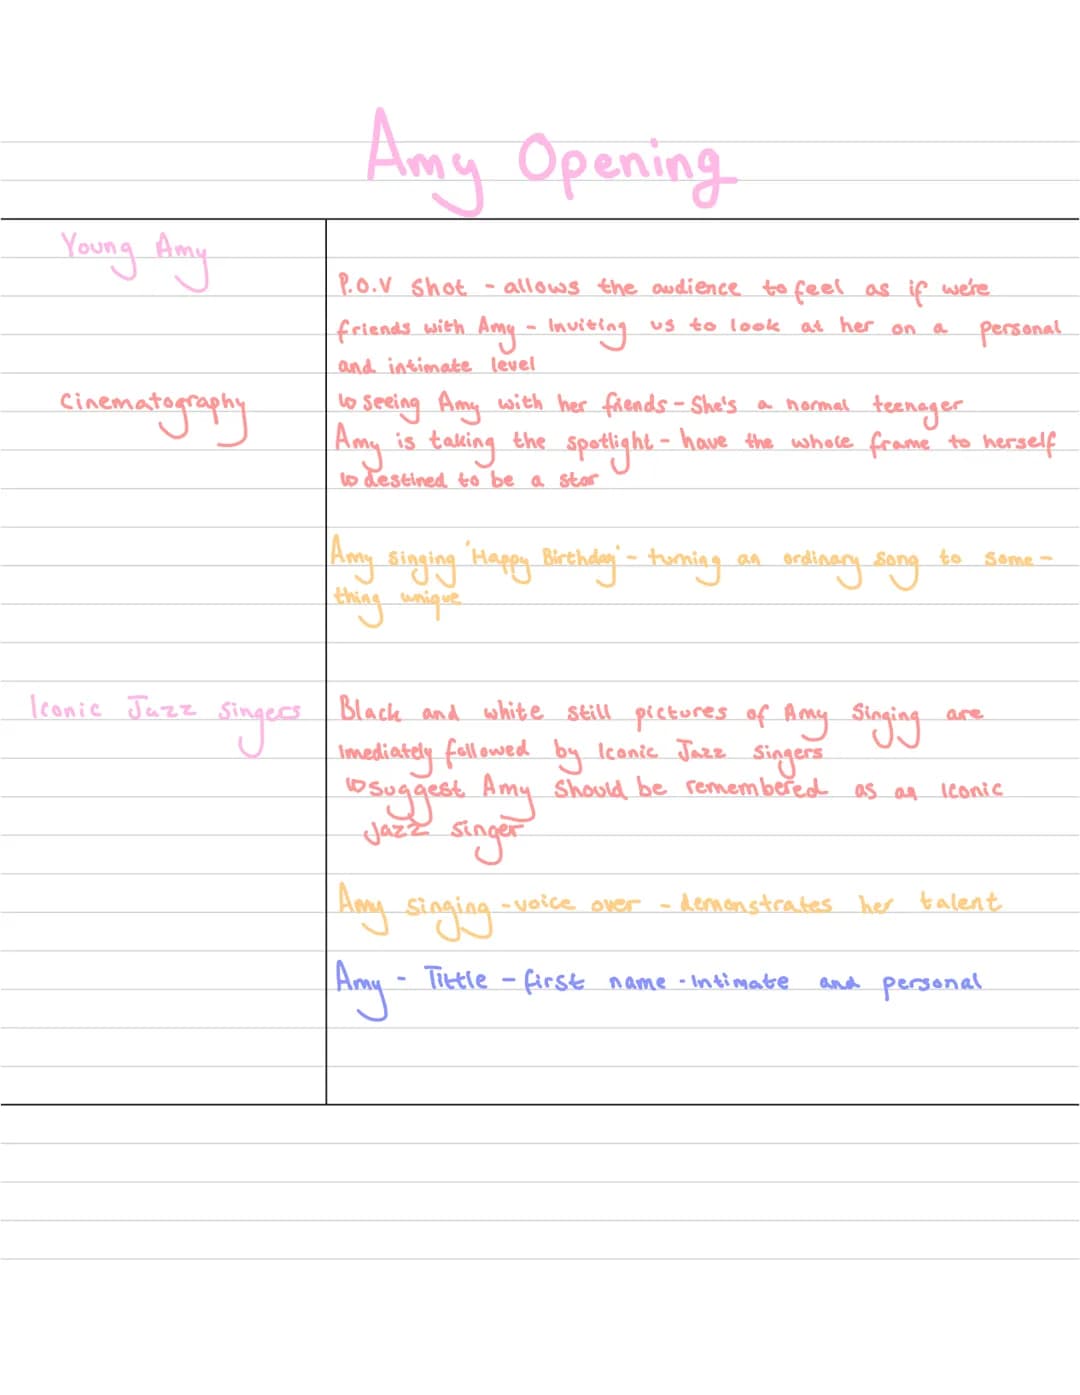 Amy Opening
Young Amy
P.O.V Shot - allows the audience to feel as if we're
friends with Amy - Inviting us to look at her on a personal
and intimate level
Cinematography
↳ seeing Amy with her friends - She's a normal teenager
Amy is taking the spotlight - have the whole frame to herself
↳ destined to be a star
Amy singing 'Happy Birthday' - turning an ordinary song to some-
thing unique
Iconic Jazz singers
Black and white still pictures of Amy Singing are
Imediately followed by Iconic Jazz singers
↳ suggest Amy should be remembered as an Iconic
Jazz singer
Amy singing - voice over - demonstrates her talent
Amy - Tittle - first name - Intimate and personal